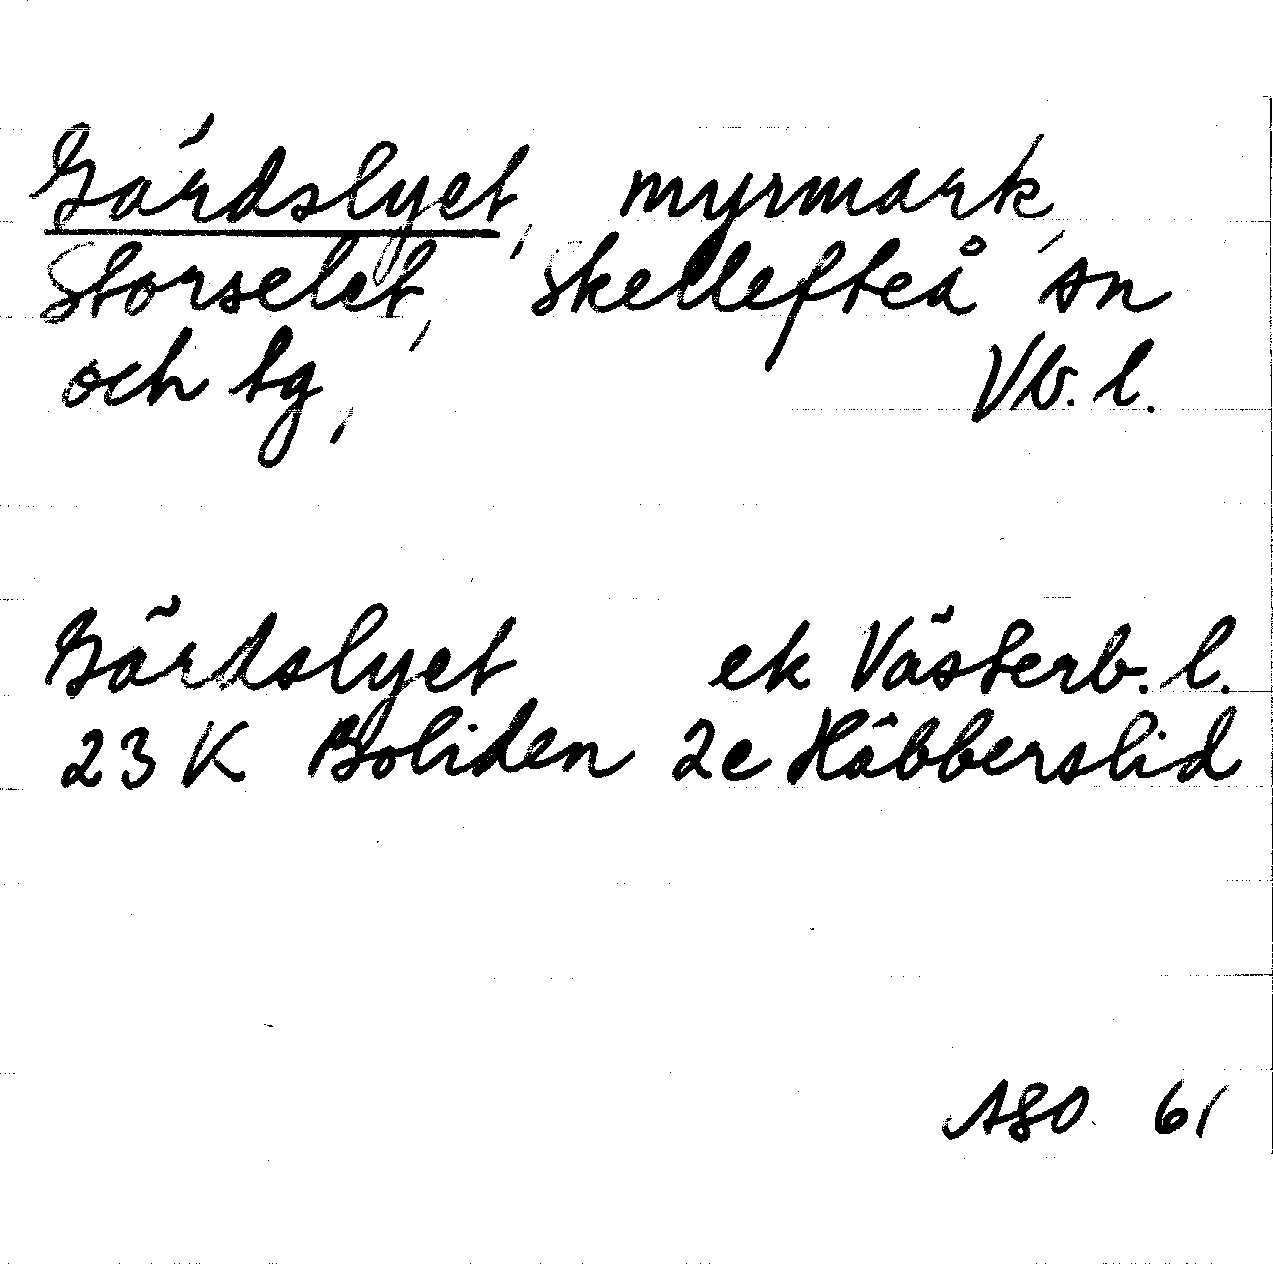 Gärdslyet, myrmark,
Storselet, Skellefteå sn
och tg, Vb. l.
Gärdslyet ek Västerb. l.
23 K Boliden 2e Häbberslid
ASO 61